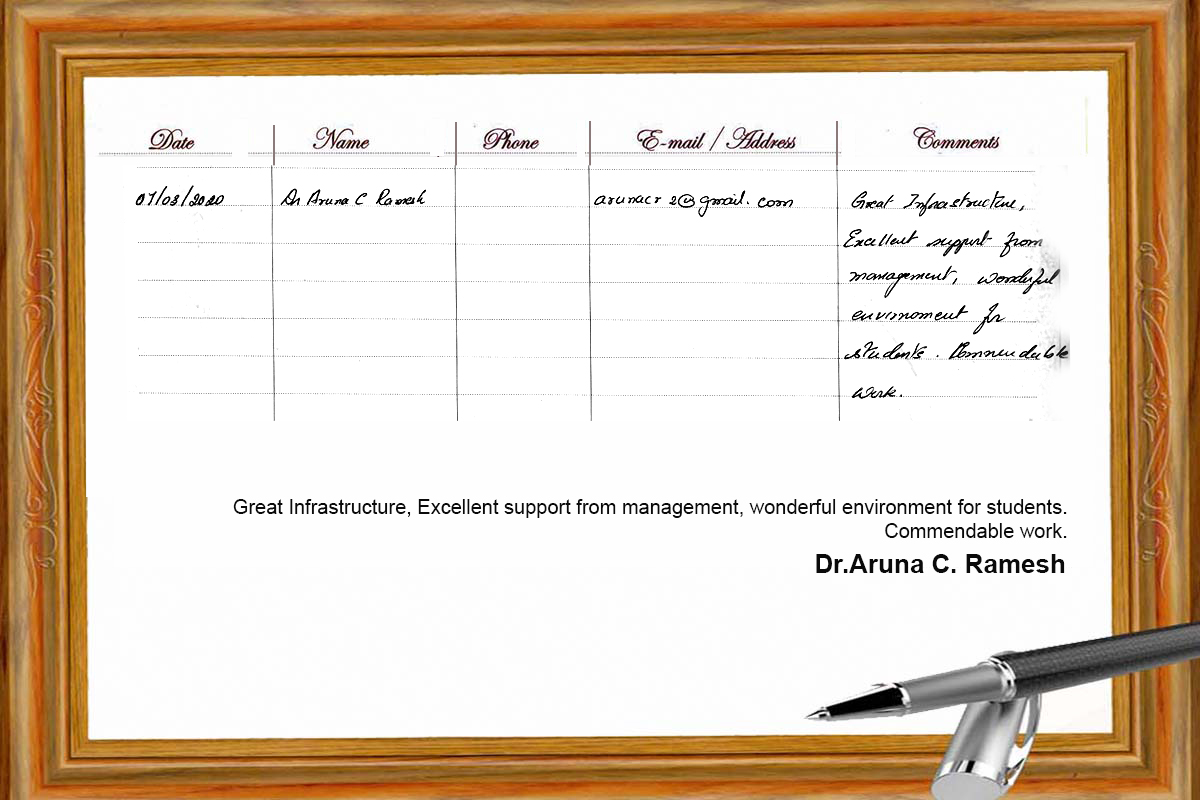 Date Name Phone E-mail / Address Comments
07/03/2020 Dr Aruna C Ramesh arunacr2@gmail.com Great Infrastructure,
Excellent support from
management, wonderful
environment for
students. Commendable
work.
Great Infrastructure, Excellent support from management, wonderful environment for students.
Commendable work.
Dr.Aruna C. Ramesh